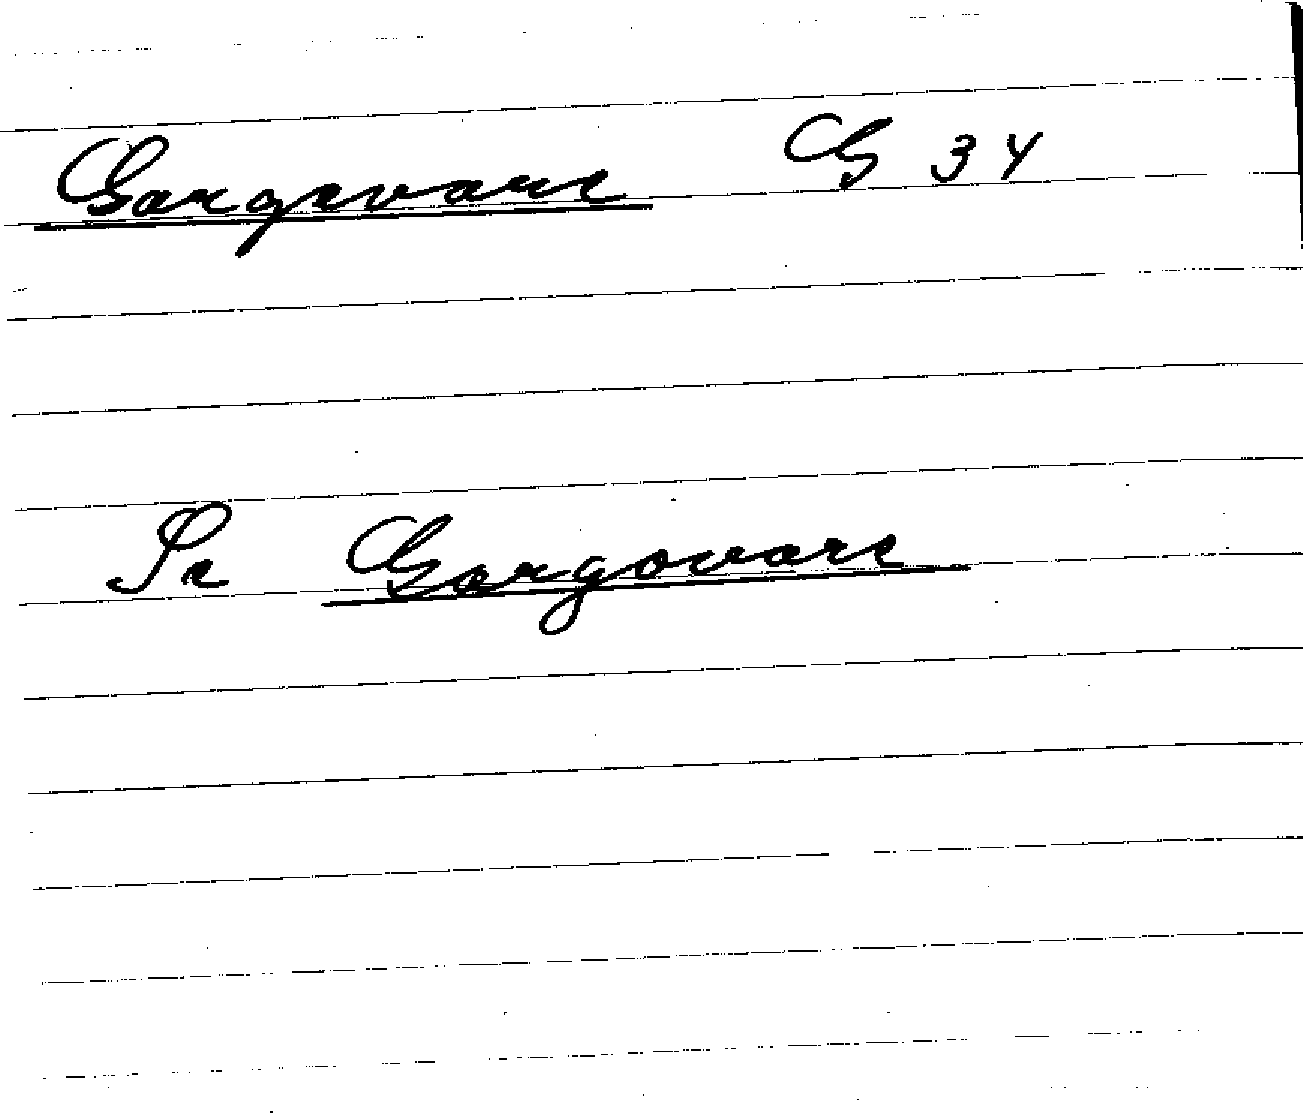 Gargevare G 34
Se Gargovare